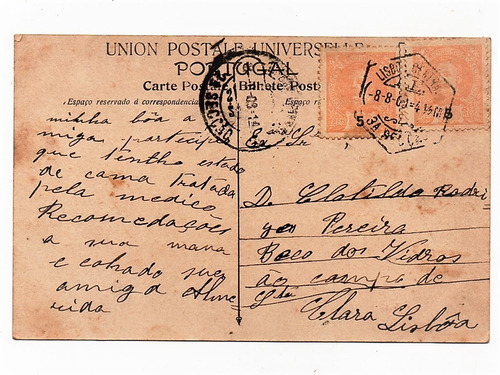 UNION POSTALE UNIVERSELLE
PORTUGAL
Carte Postale Bilhete Postal
Espaço reservado á correspondencia
Espaço
minha bôa a
miga partecipo
que tentho estado
de cama tratada
pela medico
Recomedações
a sua mana
e cohado sua
amiga Alme
rida
D. Clotilde Rodri
ges Pereira
Beco dos Vidros
ão campo de
Sta
Clara Lisbôa
LISBOA CENTRAL
8-8-09-4
3A SECÇÃO
3A SECÇÃO
5
5